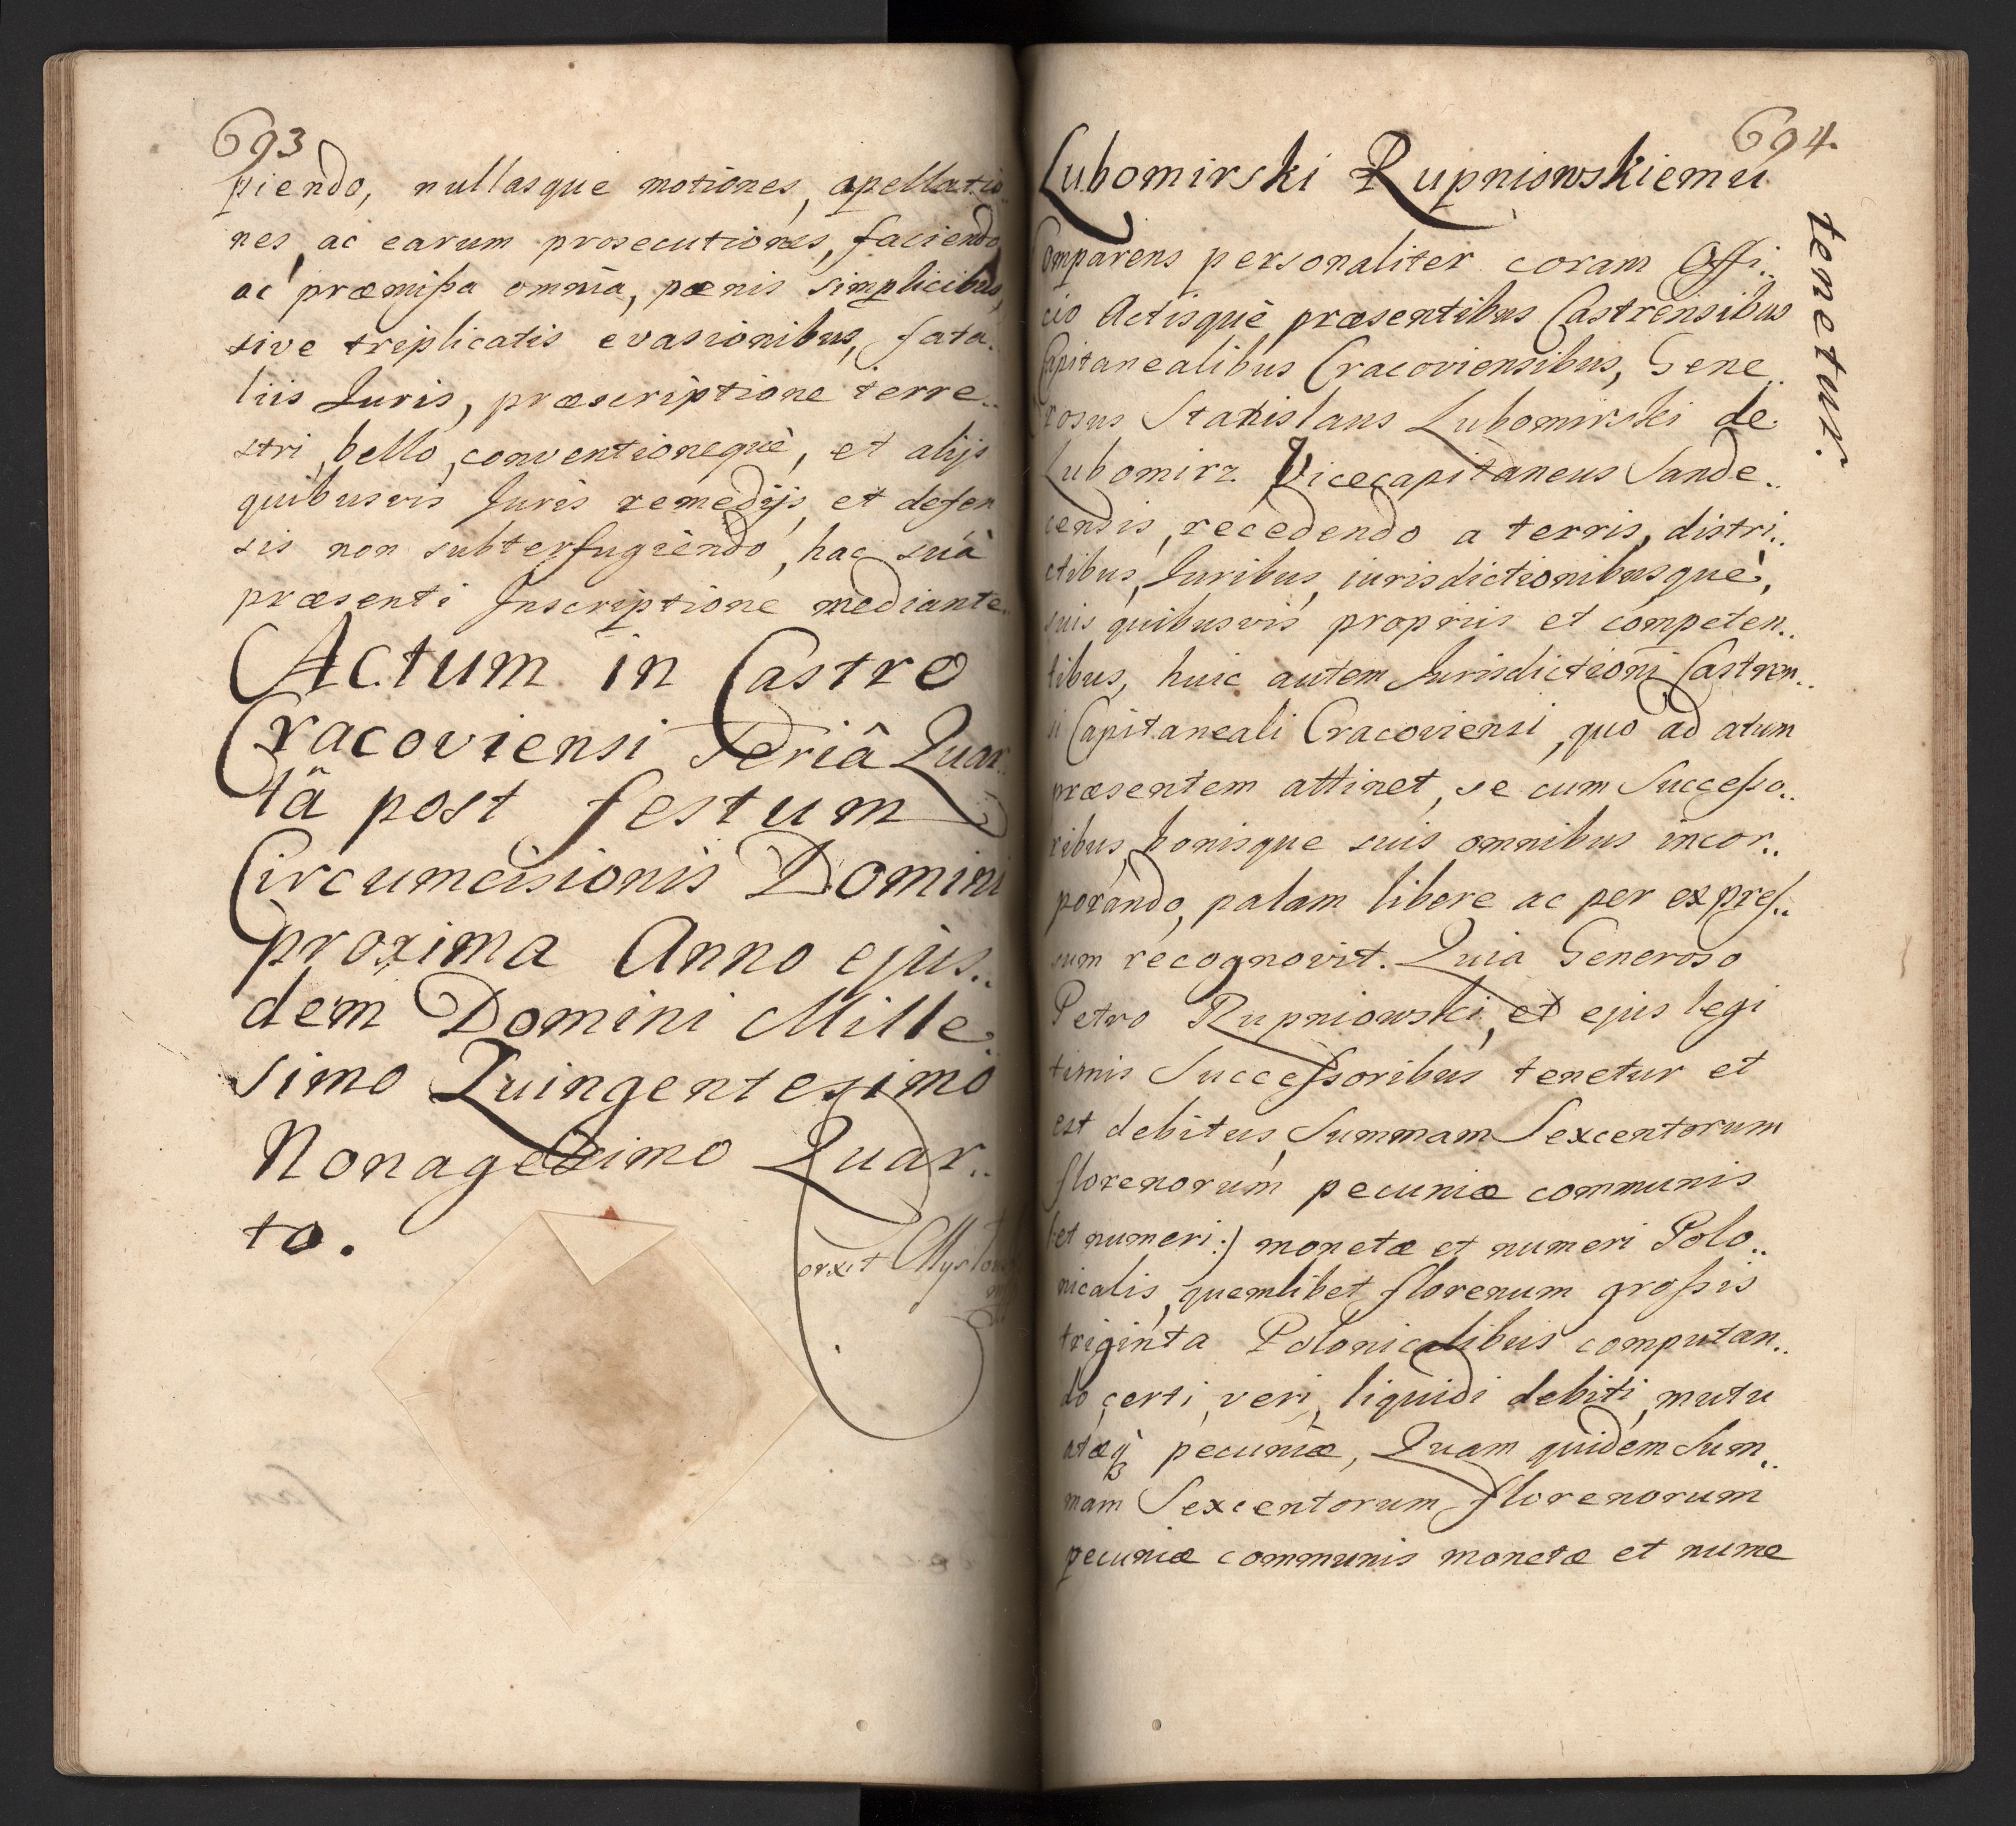 693
piendo, nullasque motiones, apellatio
nes, ac earum prosecutiones, faciendo,
ac præmißa omnia, pœnis simplicibus,
sive triplicatis evasionibus, fata..
liis Juris, præscriptione terre..
stri, bello, conventionequè, et alijs
quibusvis Juris remedijs, et defen
sis non subterfugiendo, hac suâ
præsenti Inscriptione mediante..
Actum in Castro
Cracoviensi Feriâ Quar..
tâ post festum
Circumcisionis Domini
proxima Anno ejus..
dem Domini Mille
simo Quingentesimo
Nonagesimo Quar..
to.
694.
Lubomirski Rupniowskiemu
tenetur.
Comparens personaliter coram Offi..
cio Actisquè præsentibus Castrensibus
Capitanealibus Cracoviensibus, Gene..
rosus Stanislaus Lubomirski de
Lubomirz Vicecapitaneus Sande..
censis, recedendo a terris, distri..
ctibus, Juribus, iurisdictionibusquè,
suis quibusvis propriis et competen..
tibus, huic autem Jurisdictioni Castren..
si Capitaneali Cracoviensi, quo ad atum
præsentem attinet, se cum Succeßo..
ribus, bonisque suis omnibus incor..
porando, palam libere ac per expres..
sum recognovit. Quia Generoso
Petro Rupniowski, et ejus legi
timis Successoribus tenetur et
est debitus, Summam Sexcentorum
florenorum pecuniæ communis
(et numeri:) monetæ et numeri Polo..
nicalis, quemlibet florenum großis
triginta Polonicalibus computan..
do, certi, veri, liquidi debiti, mutu
atæq3 pecuniæ, Quam quidem Sum..
mam Sexcentorum florenorum
pecuniæ communis monetæ et nume